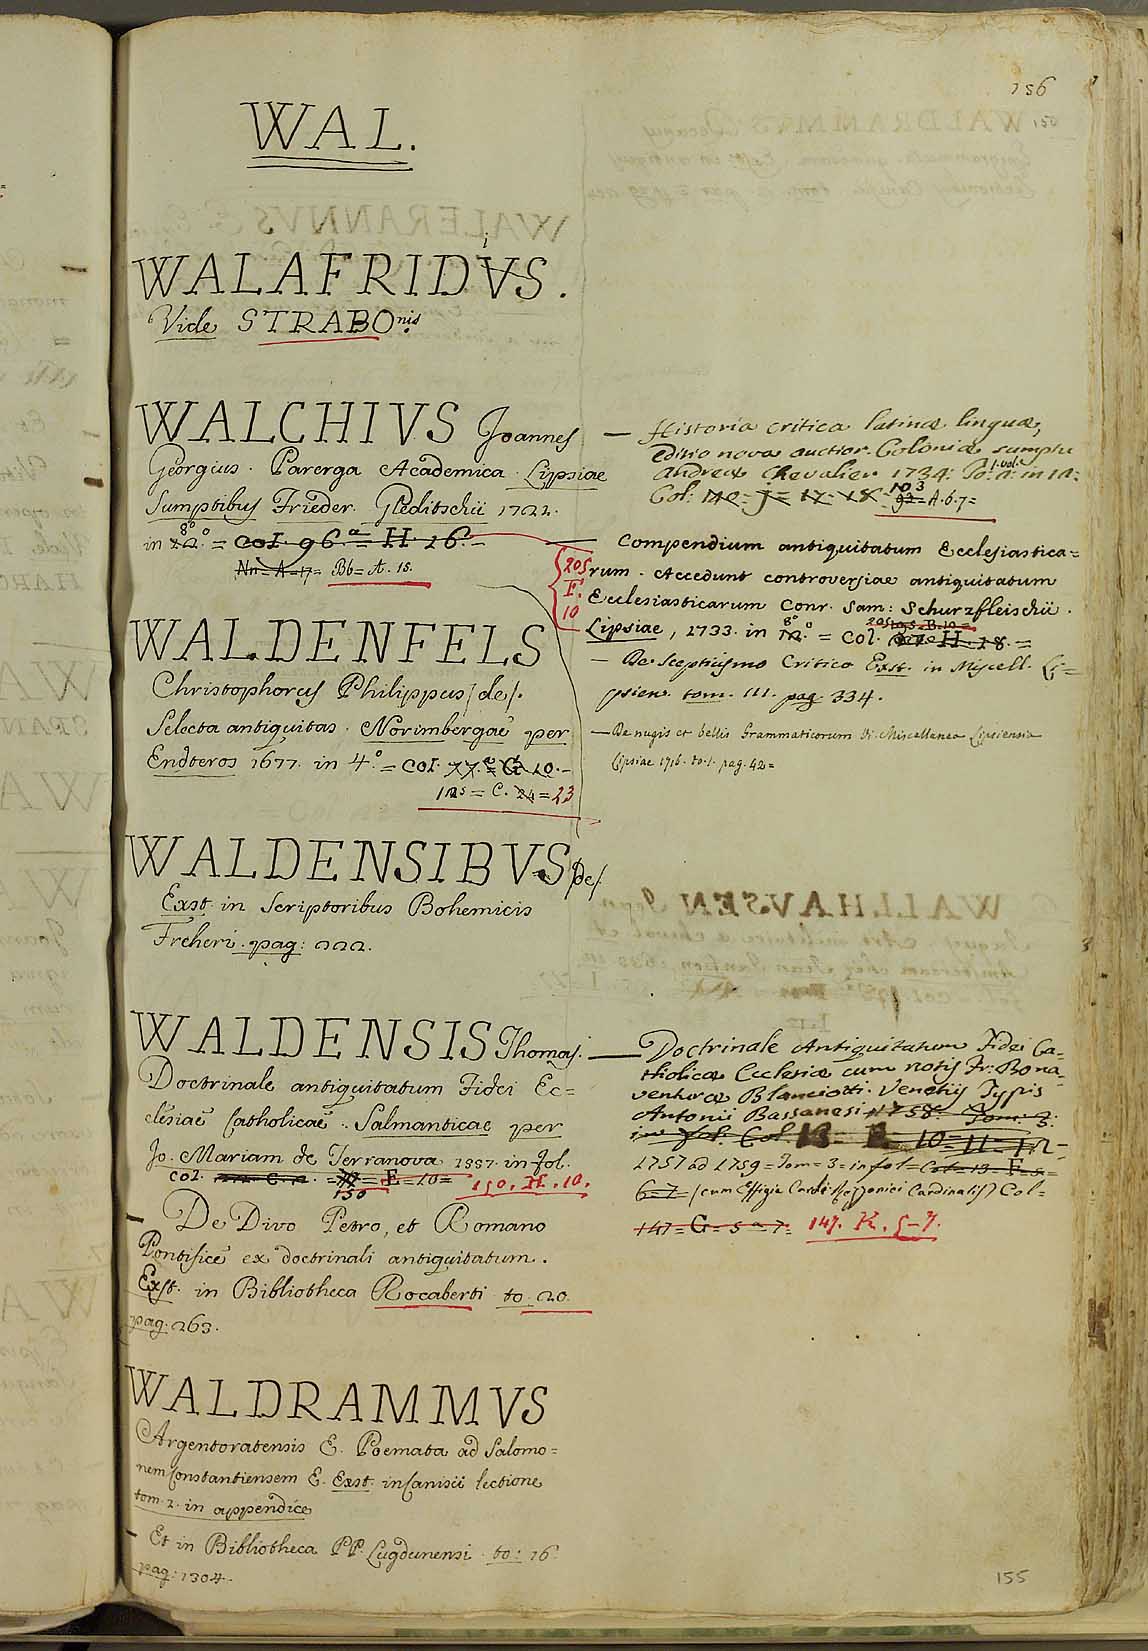 156
150
WAL.
WALAFRIDVS.
i
Vide STRABOnis
WALCHIVS Joannes
Georgius. Parerga Academica. Lipsiae
Sumptibus Frieder. Gleditschii 1722.
in 12° 8° = col. 96. a = H. 26. -
Nn = A = 17 = Bb = A. 15.
WALDENFELS
Christophorus Philippus /de/.
Selecta antiquitas. Norimbergae per
Endteros 1677. in 4.° = col. 77. e = G. 20. -
125 = C. 24 = 23
WALDENSIBVS /De/.
Exst in Scriptoribus Bohemicis
Freheri. pag: 222.
WALDENSIS Thomas.
Doctrinale antiquitatum Fidei Ec=
clesiae Catholicae. Salmanticae per
Jo. Mariam de Terranova 1557. in fol.
col. = E = 10 = 150. H. 10.
150
— De Divo Petro, et Romano
Pontifice ex doctrinali antiquitatum.
Exst. in Bibliotheca Rocaberti to. 20.
pag. 263.
WALDRAMMVS
Argentoratensis E. Poemata ad Salomo=
nem Constantiensem E. Exst. in Canisii lectione
tom. 2. in appendice
— Et in Bibliotheca PP. Lugdunensi to: 16
pag: 1304.
— Historia critica latinae linguae,
editio nova auctior. Coloniae sumptu
Andreae Chevalier 1734. To: 2: in 12:
1. vol.
Col: 110 = j = 17. 18. 92 = A. 6. 7 =
103
— Compendium antiquitatum Ecclesiastica=
rum. Accedunt controversiae antiquitatum
Ecclesiasticarum Conr. Sam: Schurzfleischii.
Lipsiae, 1733. in 12.° 8° = Col. H. 18. =
205
F.
10
— De Sceptismo Critico Exst. in Miscell. Li=
psien. tom. III. pag. 334.
— De nugis et bellis Grammaticorum in Miscellanea Lipsiensia
Lipsiae 1716. to. 1. pag. 42 =
— Doctrinale Antiquitatum Fidei Ca=
tholicae Ecclesiae cum notis Fr: Bona=
venturae Blanciotti. Venetiis Typis
Antonii Bassanesi 1758. Tom: 3:
in fol. Col. 13. 10 = 11 = 12 -
1757 ad 1759 = Tom = 3 = in fol = Col = 13. F. 5 =
6 = 7 = (cum Effigie Caroli Rezzonici Cardinalis) Col =
147 = G = 5 a 7 = 147. K. 5-7.
155